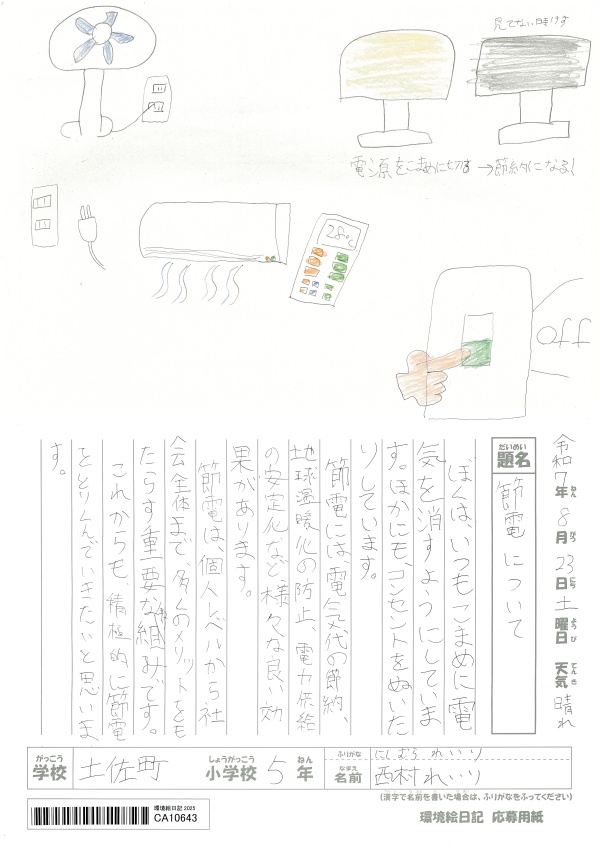 見てない時けす
電源をこまめに切る→節約になる!
28℃
off
令和7年8月23日土曜日 天気 晴れ
ねん がつ にち ようび てんき
だいめい
題名
節電について
ぼくは、いつもこまめに電
気を消すようにしていま
す。ほかにも、コンセントをぬいた
りしています。
節電には、電気代の節約、
地球温暖化の防止、電力供給
の安定化など様々な良い効
果があります。
節電は、個人レベルから社
会全体まで、多くのメリットをも
たらす重要な取り組みです。
これからも、積極的に節電
をとりくんでいきたいと思いま
す。
がっこう しょうがっこう ねん
学校 土佐町 小学校 5年
ふりがな にしむら れいり
なまえ
名前 西村 れいり
(漢字で名前を書いた場合は、ふりがなをふってください)
環境絵日記 2025
CA10643
環境絵日記 応募用紙